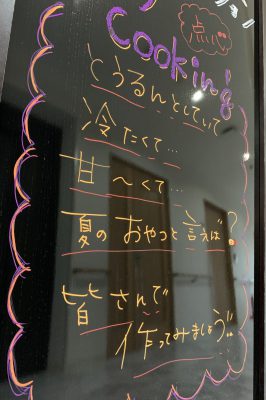 Cooking
点心
とぅるんとしていて
冷たくて…
甘〜くて…
夏の おやつと 言えば?
皆さんで
作ってみましょう!!